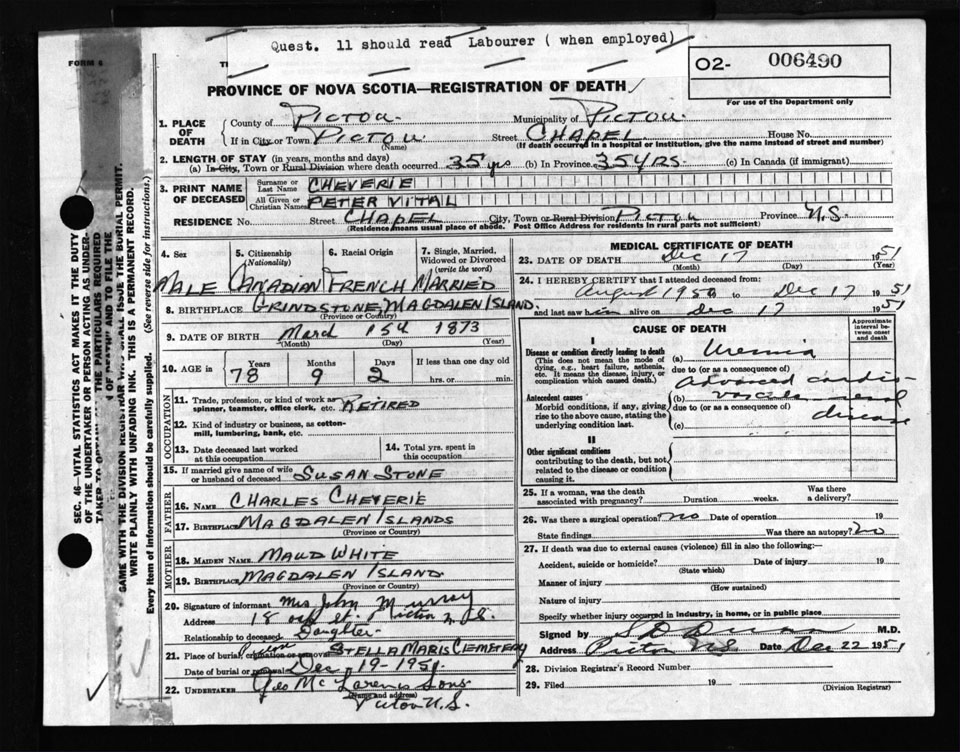 Quest. 11 should read Labourer ( when employed)
FORM 6
O2- 006490
PROVINCE OF NOVA SCOTIA—REGISTRATION OF DEATH
For use of the Department only
1. PLACE OF DEATH
County of Pictou Municipality of Pictou
If in City or Town Pictou Street Chapel House No.
(Name) (If death occurred in a hospital or institution, give the name instead of street and number)
2. LENGTH OF STAY (in years, months and days)
(a) In City, Town or Rural Division where death occurred 35 yrs (b) In Province 35 yrs. (c) In Canada (if immigrant)
3. PRINT NAME OF DECEASED
Surname or Last Name CHEVERIE
All Given or Christian Names PETER VITAL
RESIDENCE No. Street Chapel City, Town or Rural Division Pictou Province N.S.
(Residence means usual place of abode. Post Office Address for residents in rural parts not sufficient)
4. Sex 5. Citizenship (Nationality) 6. Racial Origin 7. Single, Married, Widowed or Divorced (write the word)
Male Canadian French Married
8. BIRTHPLACE Grindstone, Magdalen Island.
(Province or Country)
9. DATE OF BIRTH March 15th 1873
(Month) (Day) (Year)
10. AGE in Years Months Days If less than one day old
78 9 2 hrs. or min.
OCCUPATION
11. Trade, profession, or kind of work as spinner, teamster, office clerk, etc. Retired
12. Kind of industry or business, as cotton-mill, lumbering, bank, etc.
13. Date deceased last worked at this occupation 14. Total yrs. spent in this occupation
15. If married give name of wife or husband of deceased Susan Stone
FATHER
16. NAME Charles Cheverie
17. BIRTHPLACE Magdalen Islands
(Province or Country)
MOTHER
18. MAIDEN NAME Maud White
19. BIRTHPLACE Magdalen Island
(Province or Country)
20. Signature of informant Mrs John Murray
Address 18 St. Pictou N.S.
Relationship to deceased Daughter
21. Place of burial, cremation or removal Pictou Stella Maris Cemetery
Date of burial or removal Dec 19-1951
22. UNDERTAKER Geo McLaren & Sons
(Name and address)
Pictou N.S.
MEDICAL CERTIFICATE OF DEATH
23. DATE OF DEATH Dec 17 1951
(Month) (Day) (Year)
24. I HEREBY CERTIFY that I attended deceased from:
August 1950 to Dec 17 1951
and last saw him alive on Dec 17 1951
CAUSE OF DEATH
Approximate interval between onset and death
I
Disease or condition directly leading to death
(This does not mean the mode of dying, e.g., heart failure, asthenia, etc. It means the disease, injury, or complication which caused death.)
(a) Uremia
due to (or as a consequence of)
Antecedent causes
Morbid conditions, if any, giving rise to the above cause, stating the underlying condition last.
(b) Advanced cardio-vascular renal disease
due to (or as a consequence of)
(c)
II
Other significant conditions
contributing to the death, but not related to the disease or condition causing it.
25. If a woman, was the death associated with pregnancy? Duration weeks. Was there a delivery?
26. Was there a surgical operation? no Date of operation 19
State findings Was there an autopsy? no
27. If death was due to external causes (violence) fill in also the following:—
Accident, suicide or homicide? Date of injury 19
(State which)
Manner of injury
(How sustained)
Nature of injury
Specify whether injury occurred in industry, in home, or in public place
Signed by M.D.
Address Pictou N.S. Date Dec 22 1951
28. Division Registrar's Record Number
29. Filed 19
(Division Registrar)
SEC. 46—VITAL STATISTICS ACT MAKES IT THE DUTY
OF THE UNDERTAKER OR PERSON ACTING AS UNDER-
THE PARTICULARS REQUIRED
AND TO FILE THE
SAME WITH THE DIVISION REGISTRAR WHO SHALL ISSUE THE BURIAL PERMIT.
WRITE PLAINLY WITH UNFADING INK. THIS IS A PERMANENT RECORD.
Every item of information should be carefully supplied. (See reverse side for instructions.)